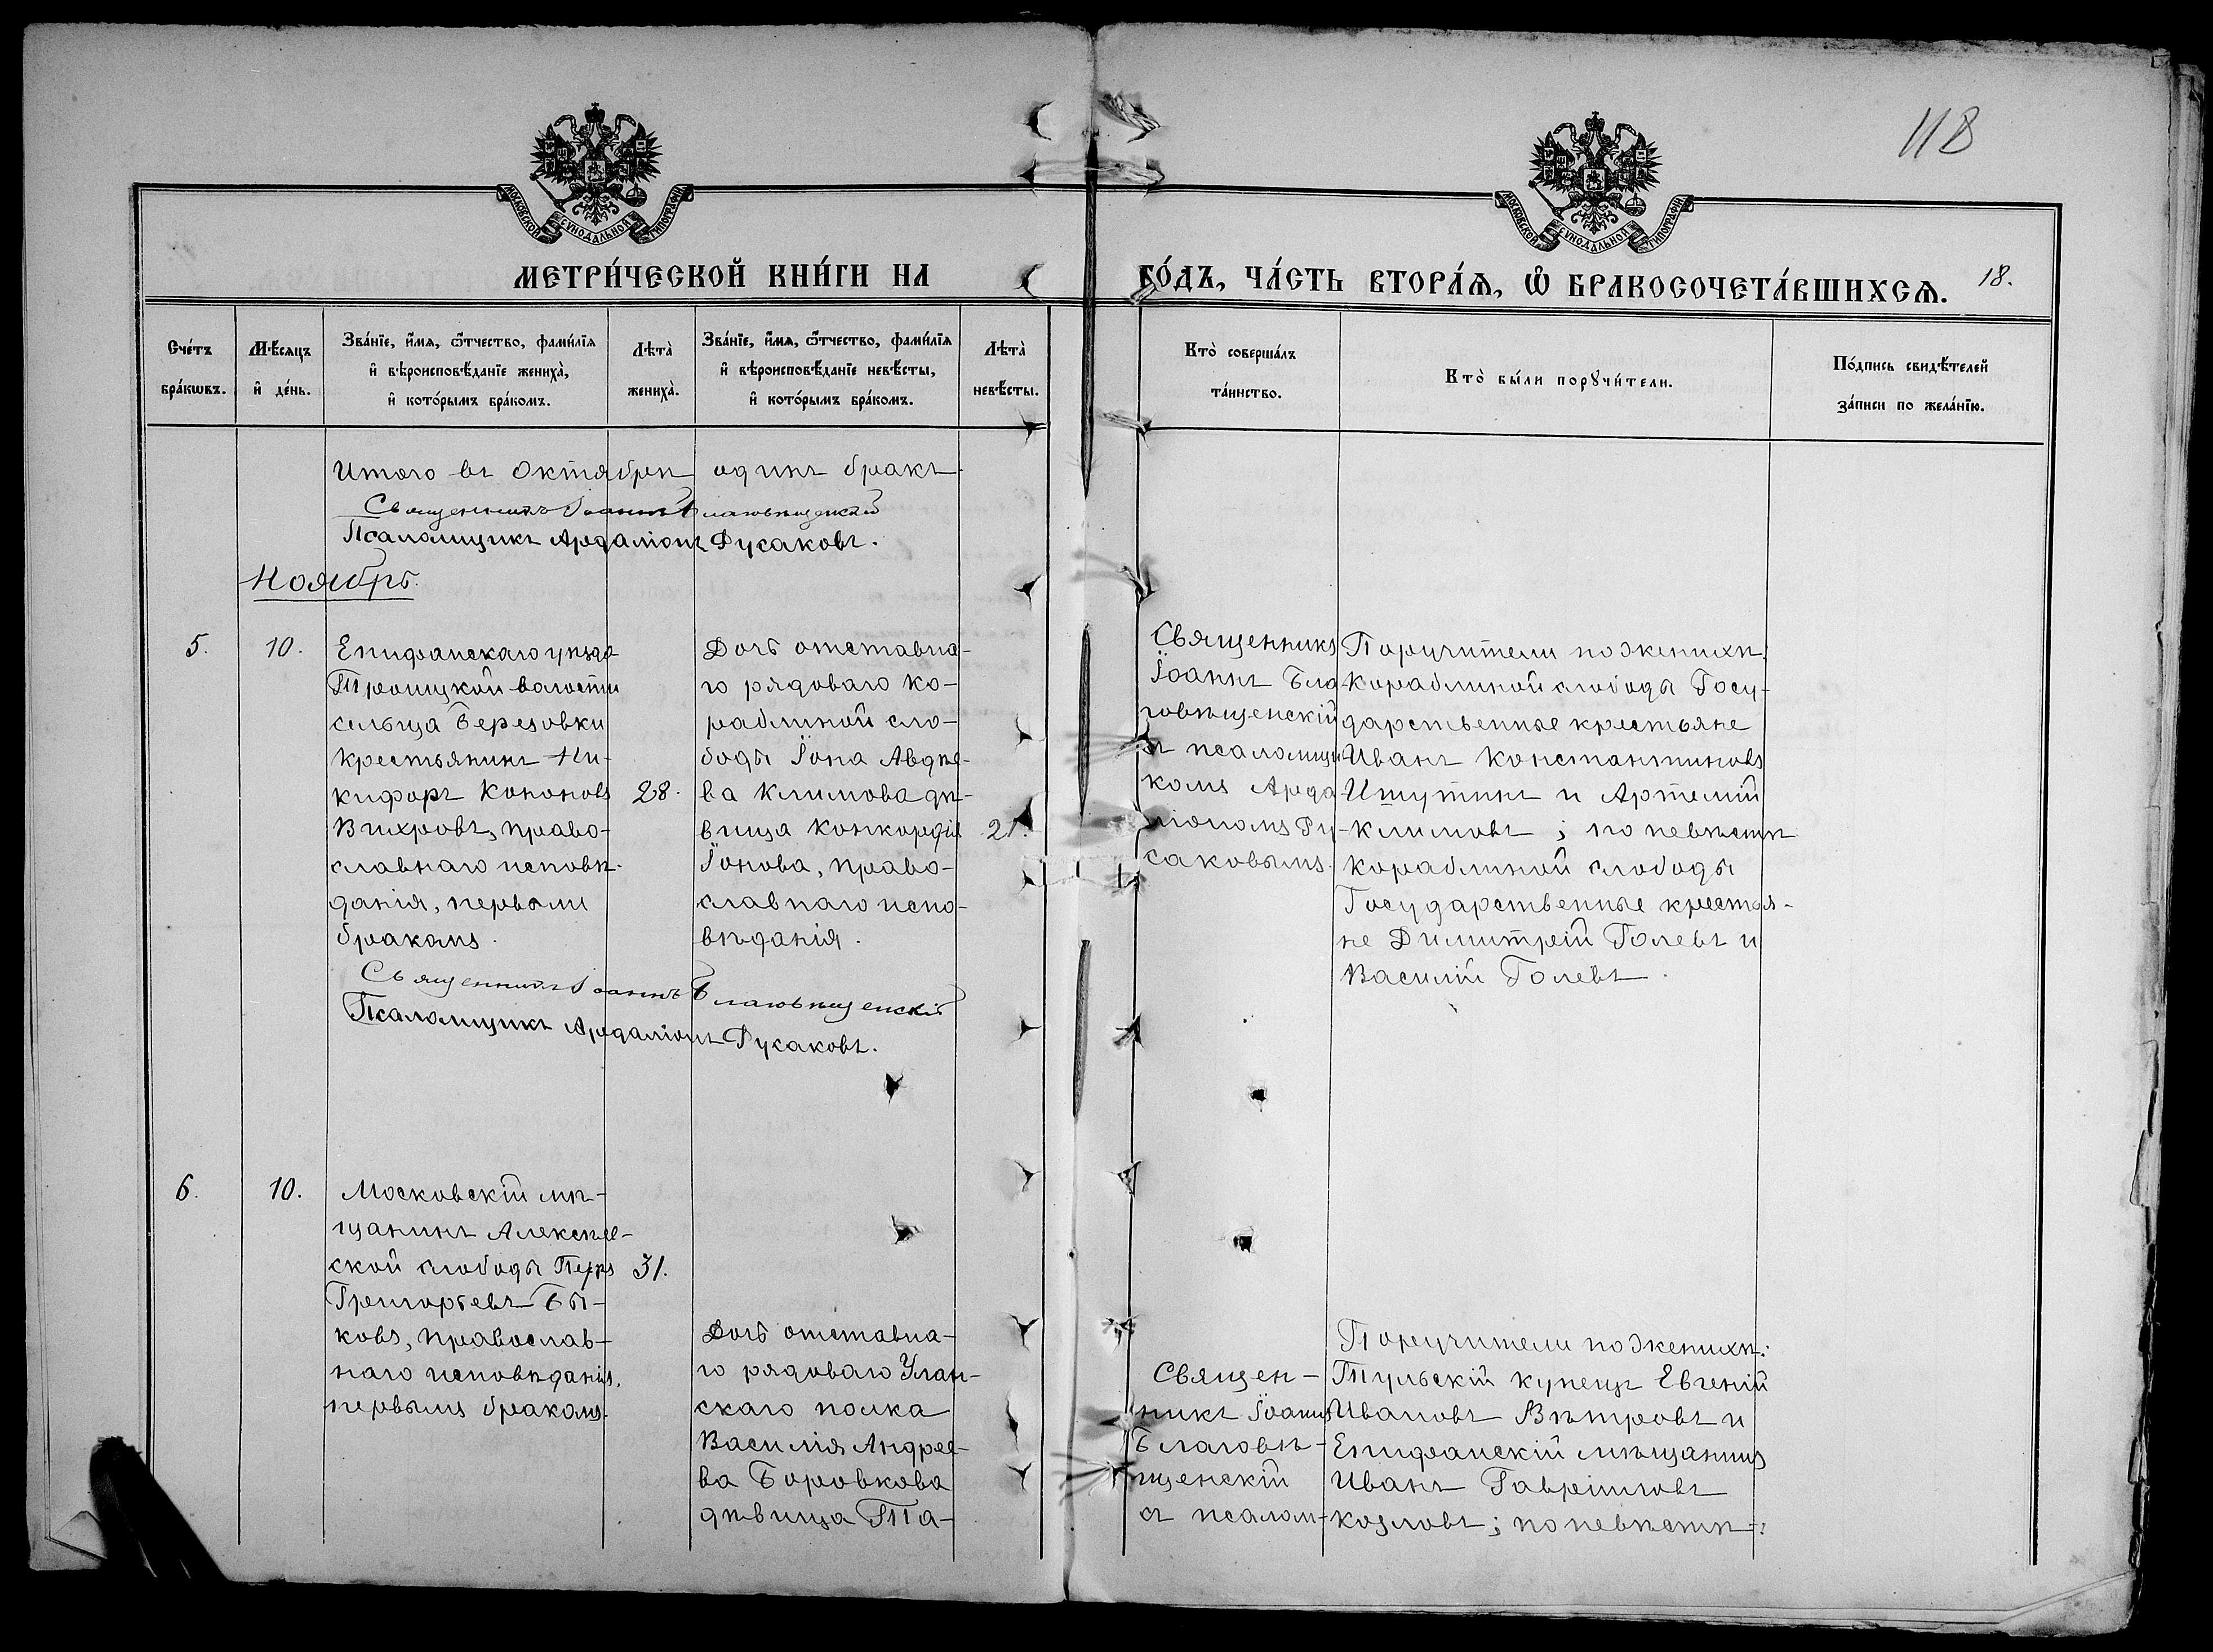 118
МОСКОВСКОЙ СѴНОДАЛЬНОЙ ТИПОГРАФІИ
МОСКОВСКОЙ СѴНОДАЛЬНОЙ ТИПОГРАФІИ
МЕТРИ́ЧЕСКОЙ КНИ́ГИ НА
ГО́ДЪ, ЧА́СТЬ ВТОРА́Ѧ, Ѽ БРАКОСОЧЕТА́ВШИХСѦ. 18.
Сче́тъ
бра́кωвъ.
Мѣ́сяцъ
и҆ де́нь.
Зва́нїе, и҆́мя, ѻ҆́тчество, фами́лїя
и҆ вѣроисповѣ́данїе жениха̀,
и҆ кото́рымъ бра́комъ.
Лѣта̀
жениха̀.
Зва́нїе, и҆́мя, ѻ҆́тчество, фами́лїя
и҆ вѣроисповѣ́данїе невѣ́сты,
и҆ кото́рымъ бра́комъ.
Лѣта̀
невѣ́сты.
Кто̀ соверша́лъ
та́инство.
Кто̀ бы́ли порꙋчи́тели.
По́дпись свидѣ́телей
за́писи по жела́нїю.
Итого въ Октябрѣ одинъ бракъ
Священникъ Іоаннъ Благовѣщенскій
Псаломщикъ Ардаліонъ Русаковъ.
Ноябрь.
5.
10.
Епифанскаго уѣзда
Троицкой волости
сельца Березовки
крестьянинъ Ни-
кифоръ Кононовъ
Вихровъ, право-
славнаго исповѣ-
данія, первымъ
бракомъ.
28.
Дочь отставна-
го рядоваго Ко-
раблиной сло-
боды Іона Авдѣе-
ва Климова дѣ-
вица Конкордія
Іонова, право-
славнаго испо-
вѣданія.
21.
Священникъ
Іоаннъ Бла-
говѣщенскій
съ псаломщи-
комъ Арда-
ліономъ Ру-
саковымъ.
Поручители по женихѣ:
Кораблиной слободы Госу-
дарственные крестьяне
Иванъ Константиновъ
Ишутинъ и Артемій
Климовъ; по невѣстѣ
Кораблиной слободы
Государственные крестья-
не Димитрій Голевъ и
Василій Голевъ.
Священникъ Іоаннъ Благовѣщенскій
Псаломщикъ Ардаліонъ Русаковъ.
6.
10.
Московскій мѣ-
щанинъ Алексѣе-
ской слободы Петръ
Григорьевъ Бы-
ковъ, православ-
наго исповѣданія,
первымъ бракомъ.
31.
Дочь отставна-
го рядоваго Улан-
скаго полка
Василія Андрее-
ва Боровкова
дѣвица Та-
Священ-
никъ Іоаннъ
Благовѣ-
щенскій
съ псалом-
Поручители по женихѣ:
Тульскій купецъ Евгеній
Ивановъ Вѣтровъ и
Епифанскій мѣщанинъ
Иванъ Гавріиловъ
Козловъ; по невѣстѣ: